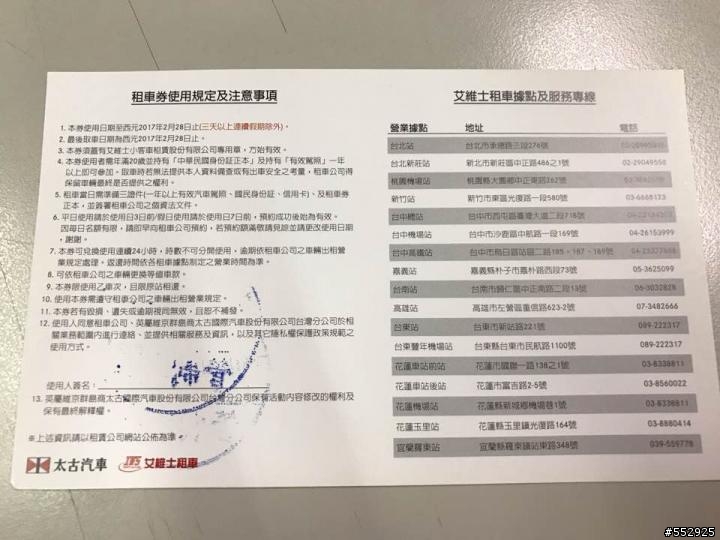 租車券使用規定及注意事項
1. 本券使用日期至西元2017年2月28日止(三天以上連續假期除外)。
2. 最後取車日期為西元2017年2月28日止。
3. 本券須蓋有艾維士小客車租賃股份有限公司專用章，方始有效。
4. 本券使用者需年滿20歲並持有「中華民國身份証正本」及持有「有效駕照」一年
以上即可參加。取車時若無法提供本人資料備查或有出車安全之考量，租車公司得
保留車輛最終是否提供之權利。
5. 租車當日需準備三證件(一年以上有效汽車駕照、國民身份証、信用卡)、及租車券
正本，並簽署租車公司之個資法文件。
6. 平日使用請於使用日3日前/假日使用請於使用日7日前，預約成功後始為有效。
因每日名額有限，請即早向租車公司預約，若預約額滿敬請見諒並請更改使用日期
，謝謝。
7. 本券可兌換使用連續24小時，時數不可分開使用，逾期依租車公司之車輛出租營
業規定處理，返還時間依各租車據點制定之營業時間為準。
8. 可依租車公司之車輛更換等值車款。
9. 本券限使用乙車次，且限原站租還。
10. 使用本券需遵守租車公司之車輛出租營業規定。
11. 本券若有毀損、遺失或逾期視同無效，且恕不補發。
12. 使用人同意租車公司、英屬維京群島商太古國際汽車股份有限公司台灣分公司於相
關業務範圍內進行連絡、並提供相關服務及資訊，以及其它隱私權保護政策規範之
使用方式。
使用人簽名：
13. 英屬維京群島商太古國際汽車股份有限公司台灣分公司保有活動內容修改的權利及
保有最終解釋權。
※上述資訊請以租賃公司網站公佈為準。
太古汽車 艾維士租車
艾維士租車據點及服務專線
營業據點 地址 電話
台北站 台北市承德路三段276號
台北新莊站 新北市新莊區中正路486之1號 02-29049558
桃園機場站 桃園縣大園鄉中正東路262號
新竹站 新竹市東區光復路一段580號 03-6668123
台中總站 台中市西屯區臺灣大道二段718號
台中機場站 台中市沙鹿區中航路一段169號 04-26153999
台中高鐵站 台中市烏日區站區二路185、187、189號
嘉義站 嘉義縣朴子市嘉朴路西段73號 05-3625099
台南站 台南市歸仁區中正南路二段13號 06-3032828
高雄站 高雄市左營區重信路623-2號 07-3482666
台東站 台東市新站路221號 089-222317
台東豐年機場站 台東縣台東市民航路1100號 089-222317
花蓮車站前站 花蓮市國聯一路138之1號 03-8338811
花蓮車站後站 花蓮市富吉路2-5號 03-8560022
花蓮機場站 花蓮縣新城鄉機場巷1號 03-8338811
花蓮玉里站 花蓮縣玉里鎮光復路164號 03-8880414
宜蘭羅東站 宜蘭縣羅東鎮站東路348號 039-559778
#552925